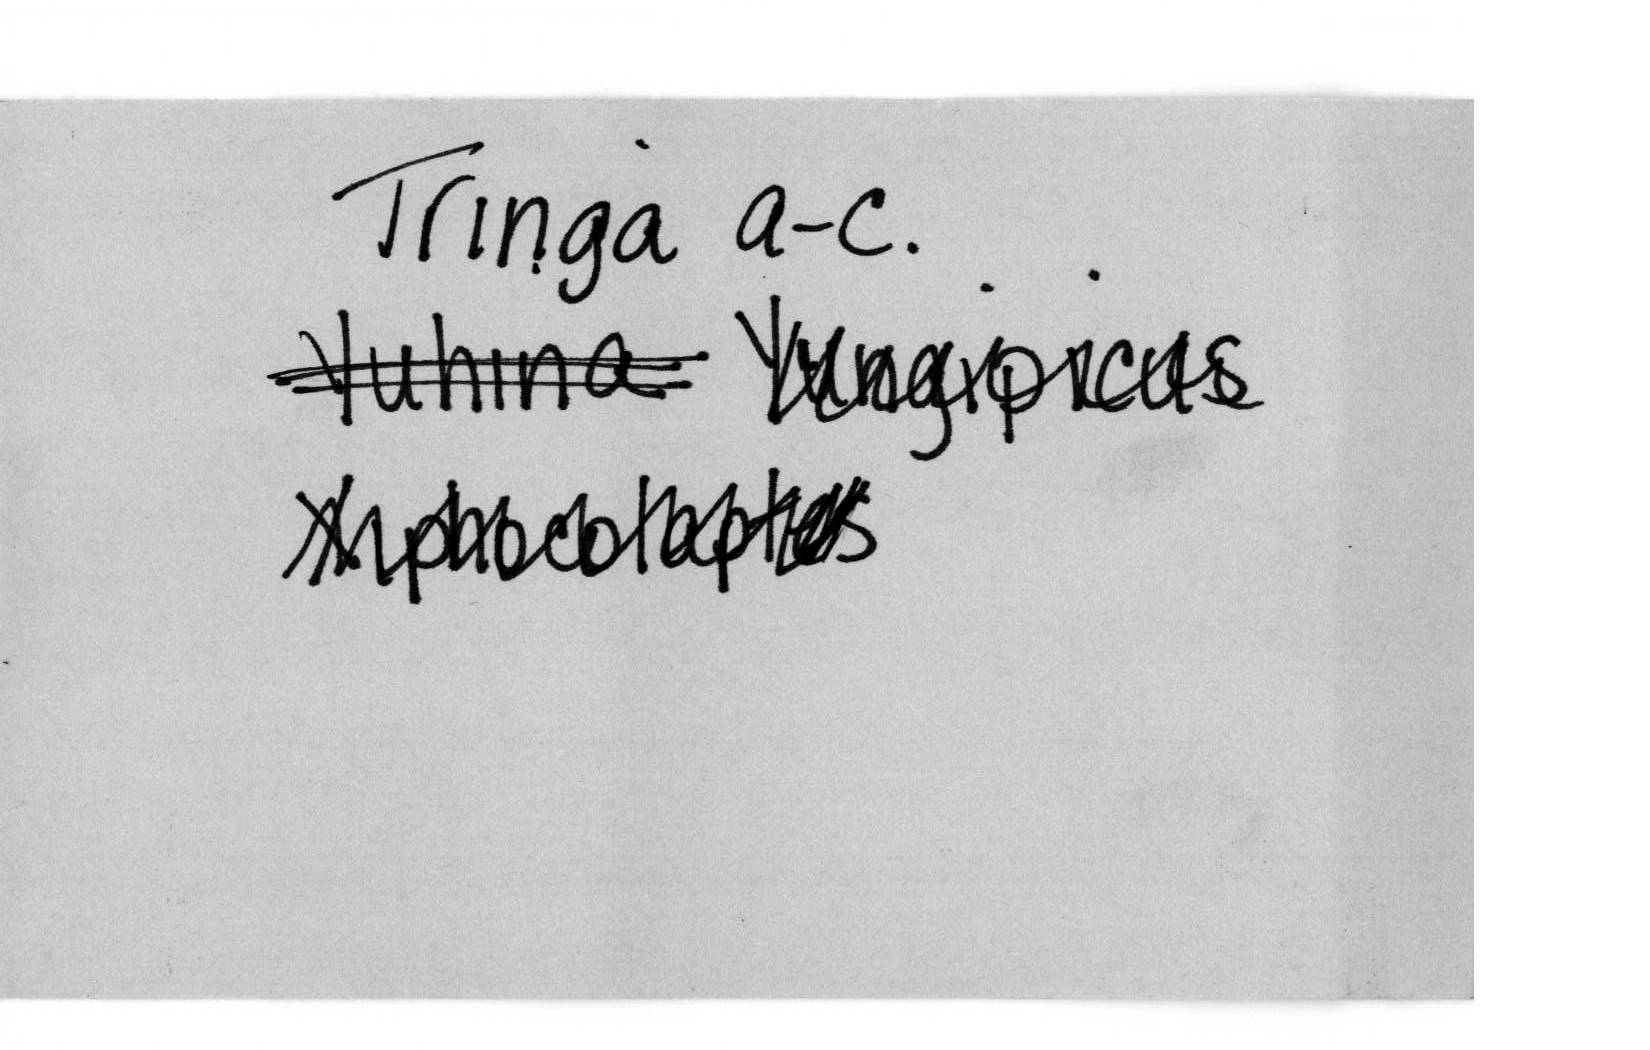 Tringa a-c.
Yuhina Yungipicus
Xiphocolaptes